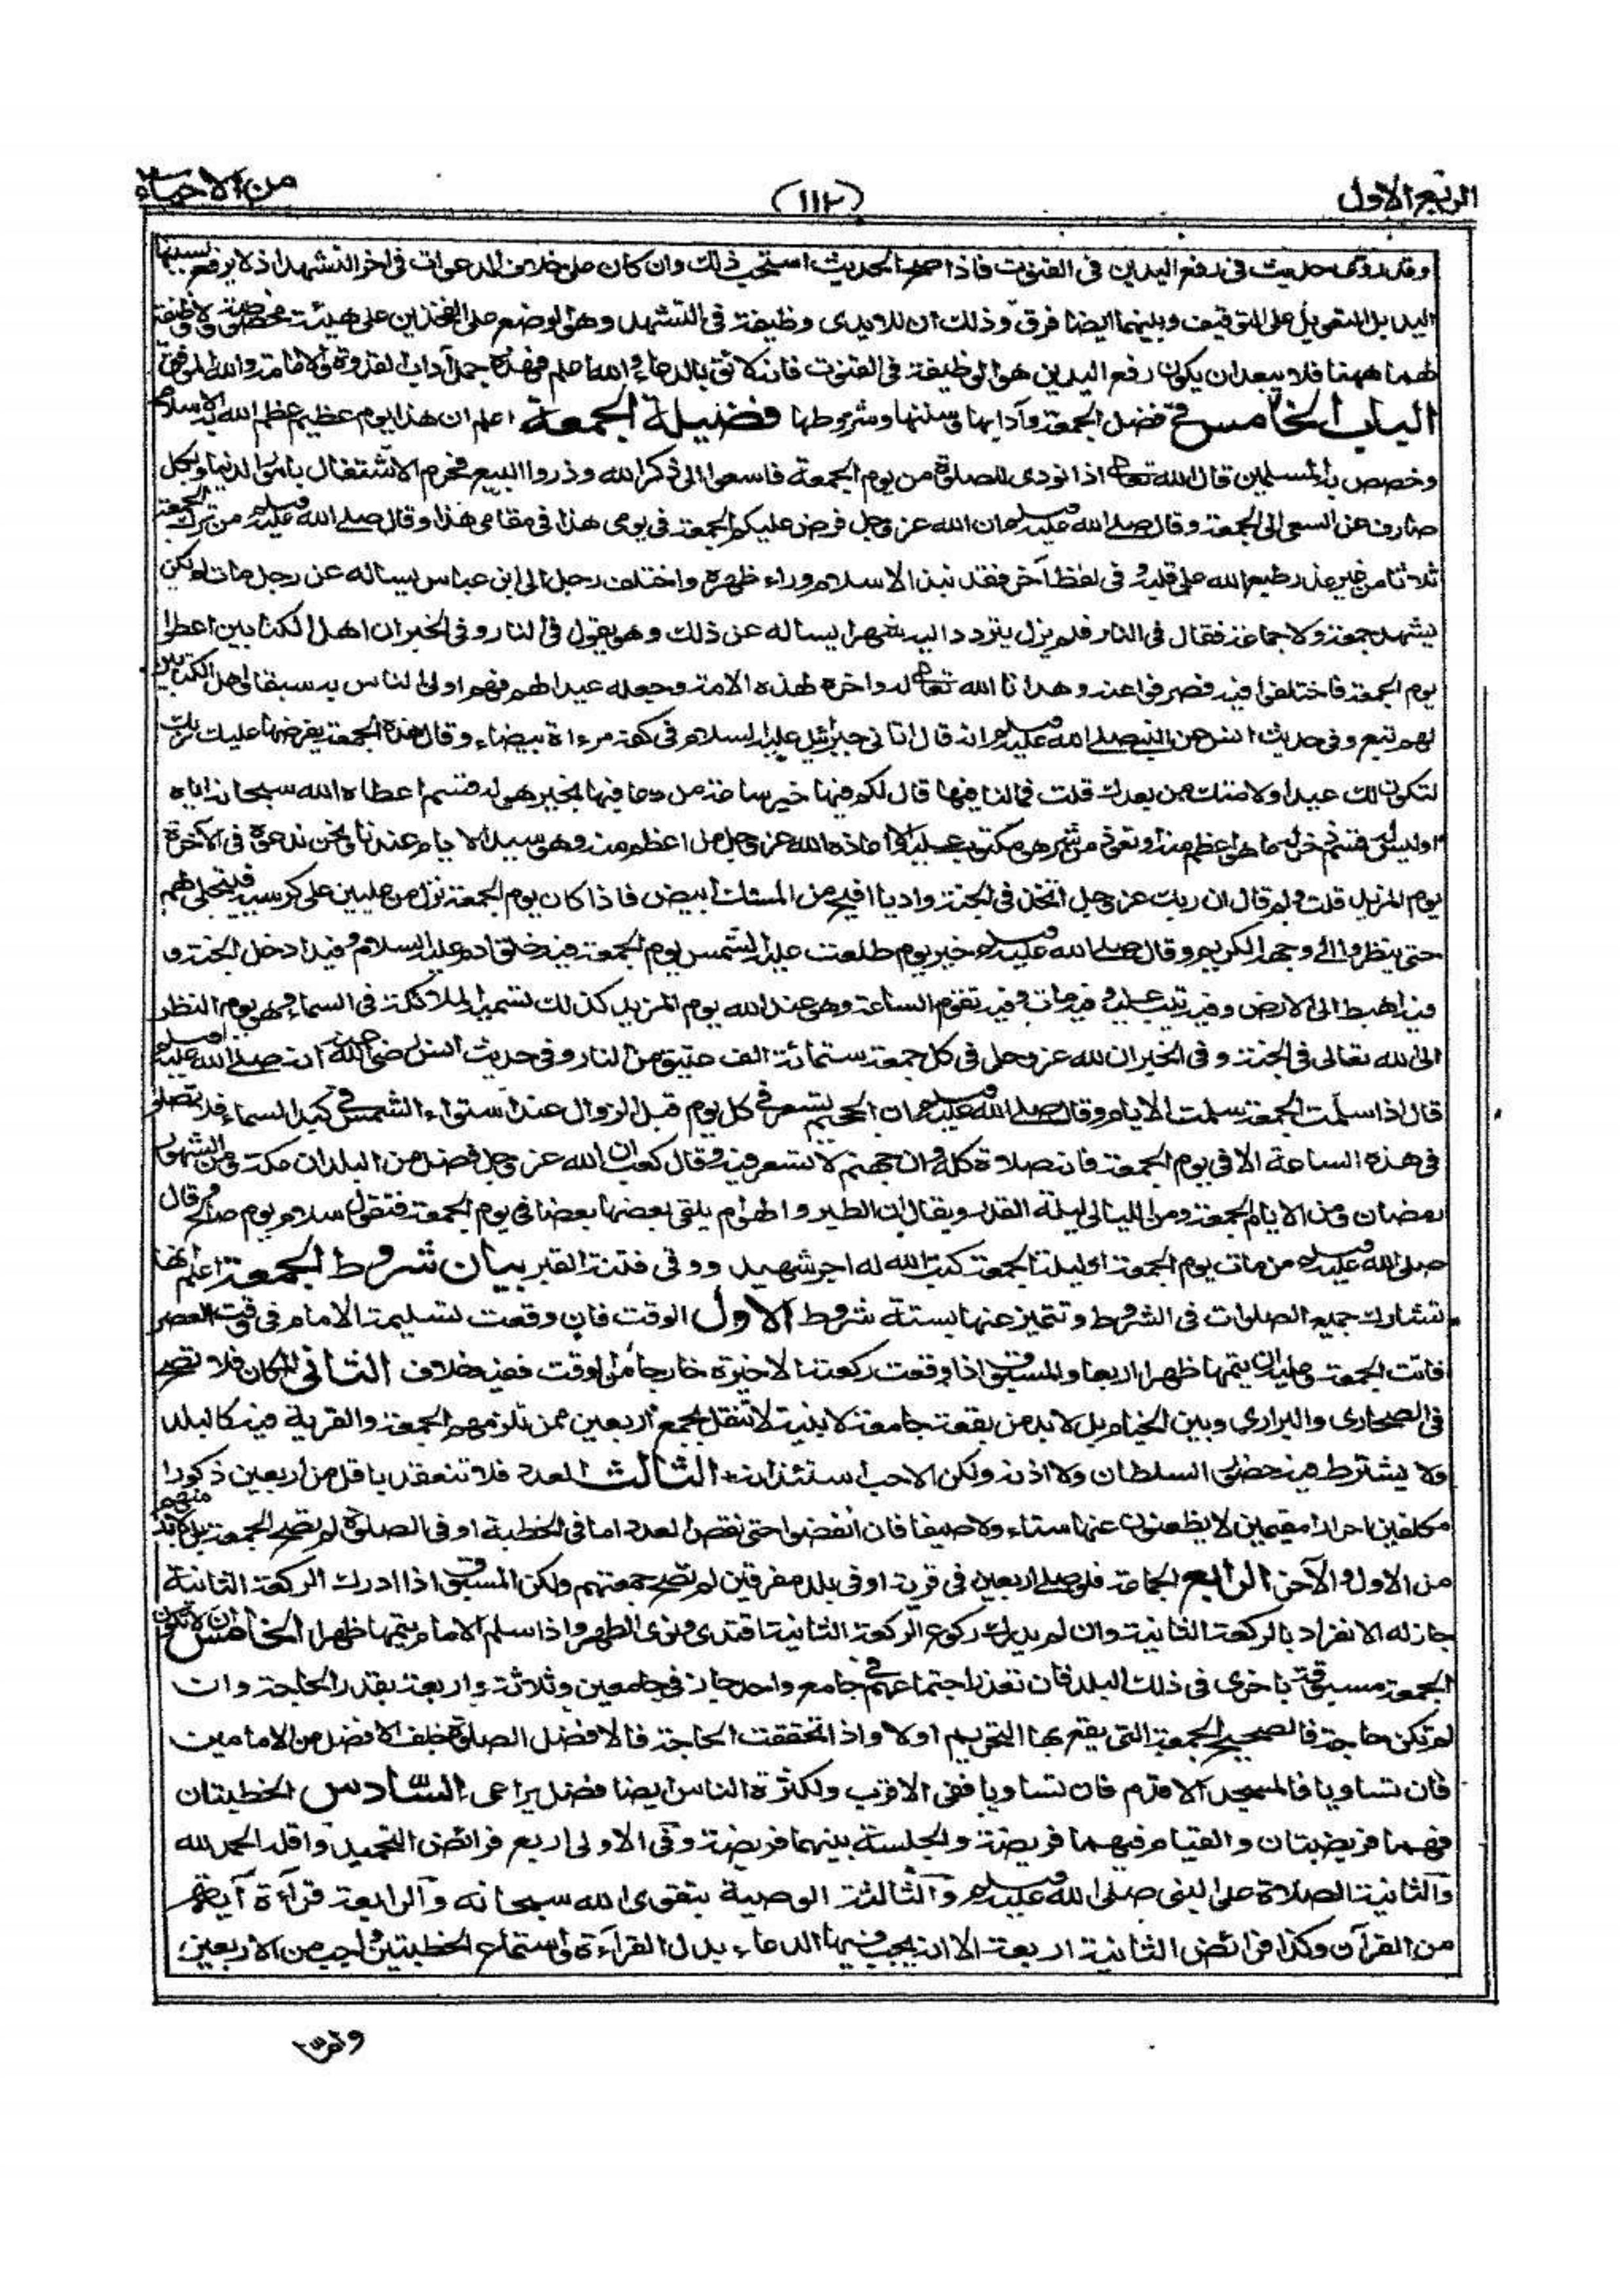 الربع الاول
(١١٢)
من الاحياء
وقد روى حديث فى رفع اليدين فى القنوت فاذا صح الحديث استحب ذلك وان كان على خلاف الدعوات فى اخر التشهد اذ لا يرفع بسببها
اليد بل التعويل على التوقيف وبينهما ايضا فرق وذلك ان للايدى وظيفة فى التشهد وهو الوضع على الفخذين على هيئة مخصوصة ولا وظيفة
لهما ههنا فلا يبعد ان يكون رفع اليدين هو الوظيفة فى القنوت فانه لائق بالدعاء والله اعلم فهذه جمل آداب القدوة والامامة والله الموفق
الباب الخامس فى فضل الجمعة وآدابها وسننها وشروطها فضيلة الجمعة اعلم ان هذا يوم عظيم عظم الله به الاسلام
وخصص به المسلمين قال الله تعالى اذا نودى للصلوة من يوم الجمعة فاسعوا الى ذكر الله وذروا البيع فحرم الاشتغال بامور الدنيا وبكل
صارف عن السعى الى الجمعة وقال صلى الله عليه وسلم ان الله عز وجل فرض عليكم الجمعة فى يومى هذا فى مقامى هذا وقال صلى الله عليه وسلم من ترك الجمعة
ثلاثا من غير عذر طبع الله على قلبه وفى لفظ آخر فقد نبذ الاسلام وراء ظهره واختلف رجل الى ابن عباس يساله عن رجل مات لم يكن
يشهد جمعة ولا جماعة فقال فى النار فلم يزل يتردد اليه شهرا يساله عن ذلك وهو يقول فى النار وفى الخبر ان اهل الكتابين اعطوا
يوم الجمعة فاختلفوا فيه فصرفوا عنه وهدانا الله تعالى له واخره لهذه الامة وجعله عيدا لهم فهم اولى الناس به سبقا واهل الكتابين
لهم تبع وفى حديث انس عن النبى صلى الله عليه وسلم انه قال اتانى جبرائيل عليه السلام فى كفه مرءاة بيضاء وقال هذه الجمعة يفرضها عليك ربك
لتكون لك عيدا ولامتك من بعدك قلت فمالنا فيها قال لكم فيها خير ساعة من دعا فيها بخير هو له قسم اعطاه الله سبحانه اياه
اوليس له قسم ذخر له ما هو اعظم منه او تعوذ من شر هو مكتوب عليه الا اعاذه الله عز وجل من اعظم منه وهو سيد الايام عندنا ونحن ندعوه فى الآخرة
يوم المزيد قلت ولم قال ان ربك عز وجل اتخذ فى الجنة واديا افيح من المسك ابيض فاذا كان يوم الجمعة نزل من عليين على كرسيه فيتجلى لهم
حتى ينظروا الى وجهه الكريم وقال صلى الله عليه وسلم خير يوم طلعت عليه الشمس يوم الجمعة فيه خلق ادم عليه السلام وفيه ادخل الجنة و
فيه اهبط الى الارض وفيه تيب عليه وفيه مات وفيه تقوم الساعة وهو عند الله يوم المزيد كذلك تسميه الملائكة فى السماء وهو يوم النظر
الى الله تعالى فى الجنة وفى الخبر ان لله عز وجل فى كل جمعة ستمائة الف عتيق من النار وفى حديث انس رضى الله عنه انه صلى الله عليه وسلم
قال اذا سلمت الجمعة سلمت الايام وقال صلى الله عليه وسلم ان الجحيم تسعر فى كل يوم قبل الزوال عند استواء الشمس فى كبد السماء فلا تصلوا
فى هذه الساعة الا فى يوم الجمعة فانه صلاة كله وان جهنم لا تسعر فيه وقال كعب ان الله عز وجل فضل من البلدان مكة ومن الشهور
رمضان ومن الايام الجمعة ومن الليالى ليلة القدر ويقال ان الطير والهوام يلقى بعضها بعضا فى يوم الجمعة فتقول سلام يوم صالح وقال
صلى الله عليه وسلم من مات يوم الجمعة او ليلة الجمعة كتب الله له اجر شهيد ووقى فتنة القبر بيان شروط الجمعة اعلم انها
تشارك جميع الصلوات فى الشروط وتتميز عنها بستة شروط الاول الوقت فان وقعت تسليمة الامام فى وقت العصر
فاتت الجمعة وعليه ان يتمها ظهرا اربعا والمسبوق اذا وقعت ركعته الاخيرة خارجا من الوقت ففيه خلاف الثانى المكان فلا تصح
فى الصحارى والبرارى وبين الخيام بل لا بد من بقعة جامعة لابنية لا تنقل يجمع اربعين ممن تلزمهم الجمعة والقرية فيه كالبلد
ولا يشترط فيه حضور السلطان ولا اذنه ولكن الاحب استئذانه الثالث العدد فلا تنعقد باقل من اربعين ذكورا
مكلفين احرارا مقيمين لا يظعنون عنها شتاء ولا صيفا فان انفضوا حتى نقص العدد اما فى الخطبة او فى الصلوة لم تصح الجمعة بل لا بد منهم
من الاول والآخر الرابع الجماعة فلو صلى اربعين فى قرية او فى بلد مفرقين لم تصح جمعتهم ولكن المسبوق اذا ادرك الركعة الثانية
جاز له الانفراد بالركعة الثانية وان لم يدرك ركوع الركعة الثانية اقتدى ونوى الظهر واذا سلم الامام يتمها ظهرا الخامس ان لا تكون
الجمعة مسبوقة باخرى فى ذلك البلد فان تعذر اجتماعهم فى جامع واحد جاز فى جامعين وثلاثة واربعة بقدر الحاجة وان
لم تكن حاجة فالصحيح الجمعة التى يقع بها التحريم اولا واذا تحققت الحاجة فالافضل الصلوة خلف الافضل من الامامين
فان تساويا فالمسجد الاقدم فان تساويا ففى الاقرب ولكثرة الناس ايضا فضل يراعى السادس الخطبتان
فهما فريضتان والقيام فيهما فريضة والجلسة بينهما فريضة وفى الاولى اربع فرائض التحميد واقله الحمد لله
والثانية الصلاة على النبى صلى الله عليه وسلم والثالثة الوصية بتقوى الله سبحانه والرابعة قرآءة آية
من القرآن وكذا فرائض الثانية اربعة الا انه يجب فيها الدعاء بدل القرآءة واستماع الخطبتين واجب من الاربعين